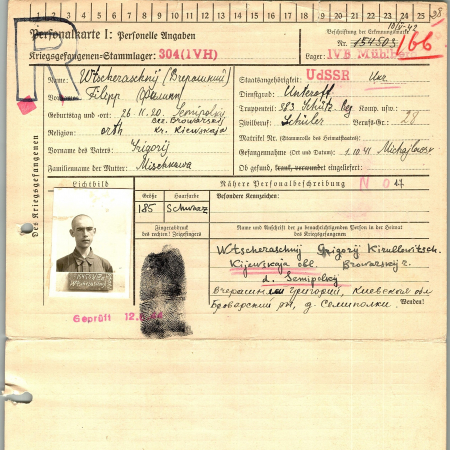 1 2 3 4 5 6 7 8 9 10 11 12 13 14 15 16 17 18 19 20 21 22 23 24 25
R
Personalkarte I: Personelle Angaben
Beschriftung der Erkennungsmarke
Kriegsgefangenen-Stammlager: 304 (IV H)
Nr. 154503 166
Lager: IVB Mühlberg
Des Kriegsgefangenen
Name: Wtscheraschnij (Вчерашний)
Staatsangehörigkeit: UdSSR Ukr.
Vorname: Filipp (Филипп)
Dienstgrad: Unteroff
Geburtstag und -ort: 26.11.20. Semipolkij
Truppenteil: 383 Schütz. Reg. Komp. usw.:
Browarskij
Zivilberuf: Schüler Berufs-Gr.: 28
Religion: orth kr. Kiewskaja
Matrikel Nr. (Stammrolle des Heimatstaates):
Vorname des Vaters: Grigorij
Gefangennahme (Ort und Datum): 1.10.41
Familienname der Mutter:
Ob gesund, krank, verwundet eingeliefert:
Lichtbild
Nähere Personalbeschreibung
Größe Haarfarbe Besondere Kennzeichen:
185 Schwarz
Fingerabdruck des rechten! Zeigefingers
Name und Anschrift der zu benachrichtigenden Person in der Heimat des Kriegsgefangenen
Wtscheraschnij Grigorij Kirillowitsch.
Kijewskaja obl. Browarskij r.
d. Semipolkij
Григорий, Киевская обл
Броварский рн, д. Семиполки
Wenden!
Geprüft 12.